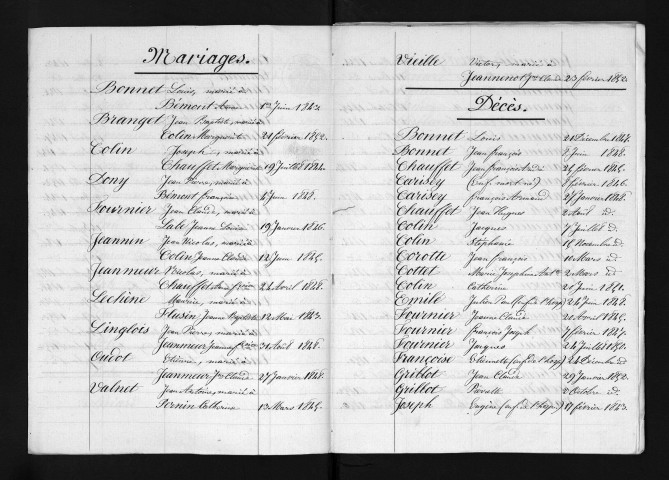 Mariages.
Bonnet Louis, marié à
Bémont Anne 1er Juin 1843.
Branget Jean Baptiste, marié à
Colin Marguerite 21 février 1852.
Colin Joseph, marié à
Chauffet Marguerite 19 Juillet 1844.
Dony Jean Pierre, marié à
Bémont françoise Juin 1848.
Fournier Jean Claude, marié à
Lalé Jeanne Louise 19 Janvier 1846.
Jeannin Jean Nicolas, marié à
Colin Jeanne Claude 12 Juin 1845.
Jeanmeur Nicolas, marié à
Chauffet 24 Avril 1848.
Lechêne Maurice, marié à
Flusin Jeanne Baptiste 12 Mai 1843.
Linglois Jean Pierre, marié à
Jeanmeur 31 Août 1848.
Oudot Etienne, marié à
Jeanmeur Jne Claude 27 Janvier 1848.
Valnet Jean Antoine, marié à
Pernin Catherine 13 Mars 1845.
Vieille Victor, marié à
Jeannenot Jne Claude 23 février 1852.
Décès.
Bonnet Louis 21 Décembre 1847.
Bonnet Jean françois Juin 1848.
Chauffet Jean françois 25 février 1845.
Carisey (Enf. mort né) février 1846.
Carisey françois Armand 27 Janvier 1848.
Chauffet Jean Hugues 2 Avril id.
Colin Jacques 7 Juillet id.
Colin Stephanie 18 Novembre id.
Corotte Jean françois 10 Mars id
Cottet Marie Josephine 2 Mars id
Colin Catherine 20 Juin 1851.
Emile Julien (enf. de l'hosp.) 24 Juin 1848.
Fournier Jeanne Claude 20 Avril 1845.
Fournier françois Joseph 7 février 1847.
Fournier Jacques 24 Juillet 1850.
Françoise Etiennette (enf. de l'hosp.) 24 Décembre id
Grillot Jean Claude 29 Janvier 1852.
Grillot Pierrette 2 Octobre id.
Joseph Eugène (enf. de l'hospice) 17 février 1843.